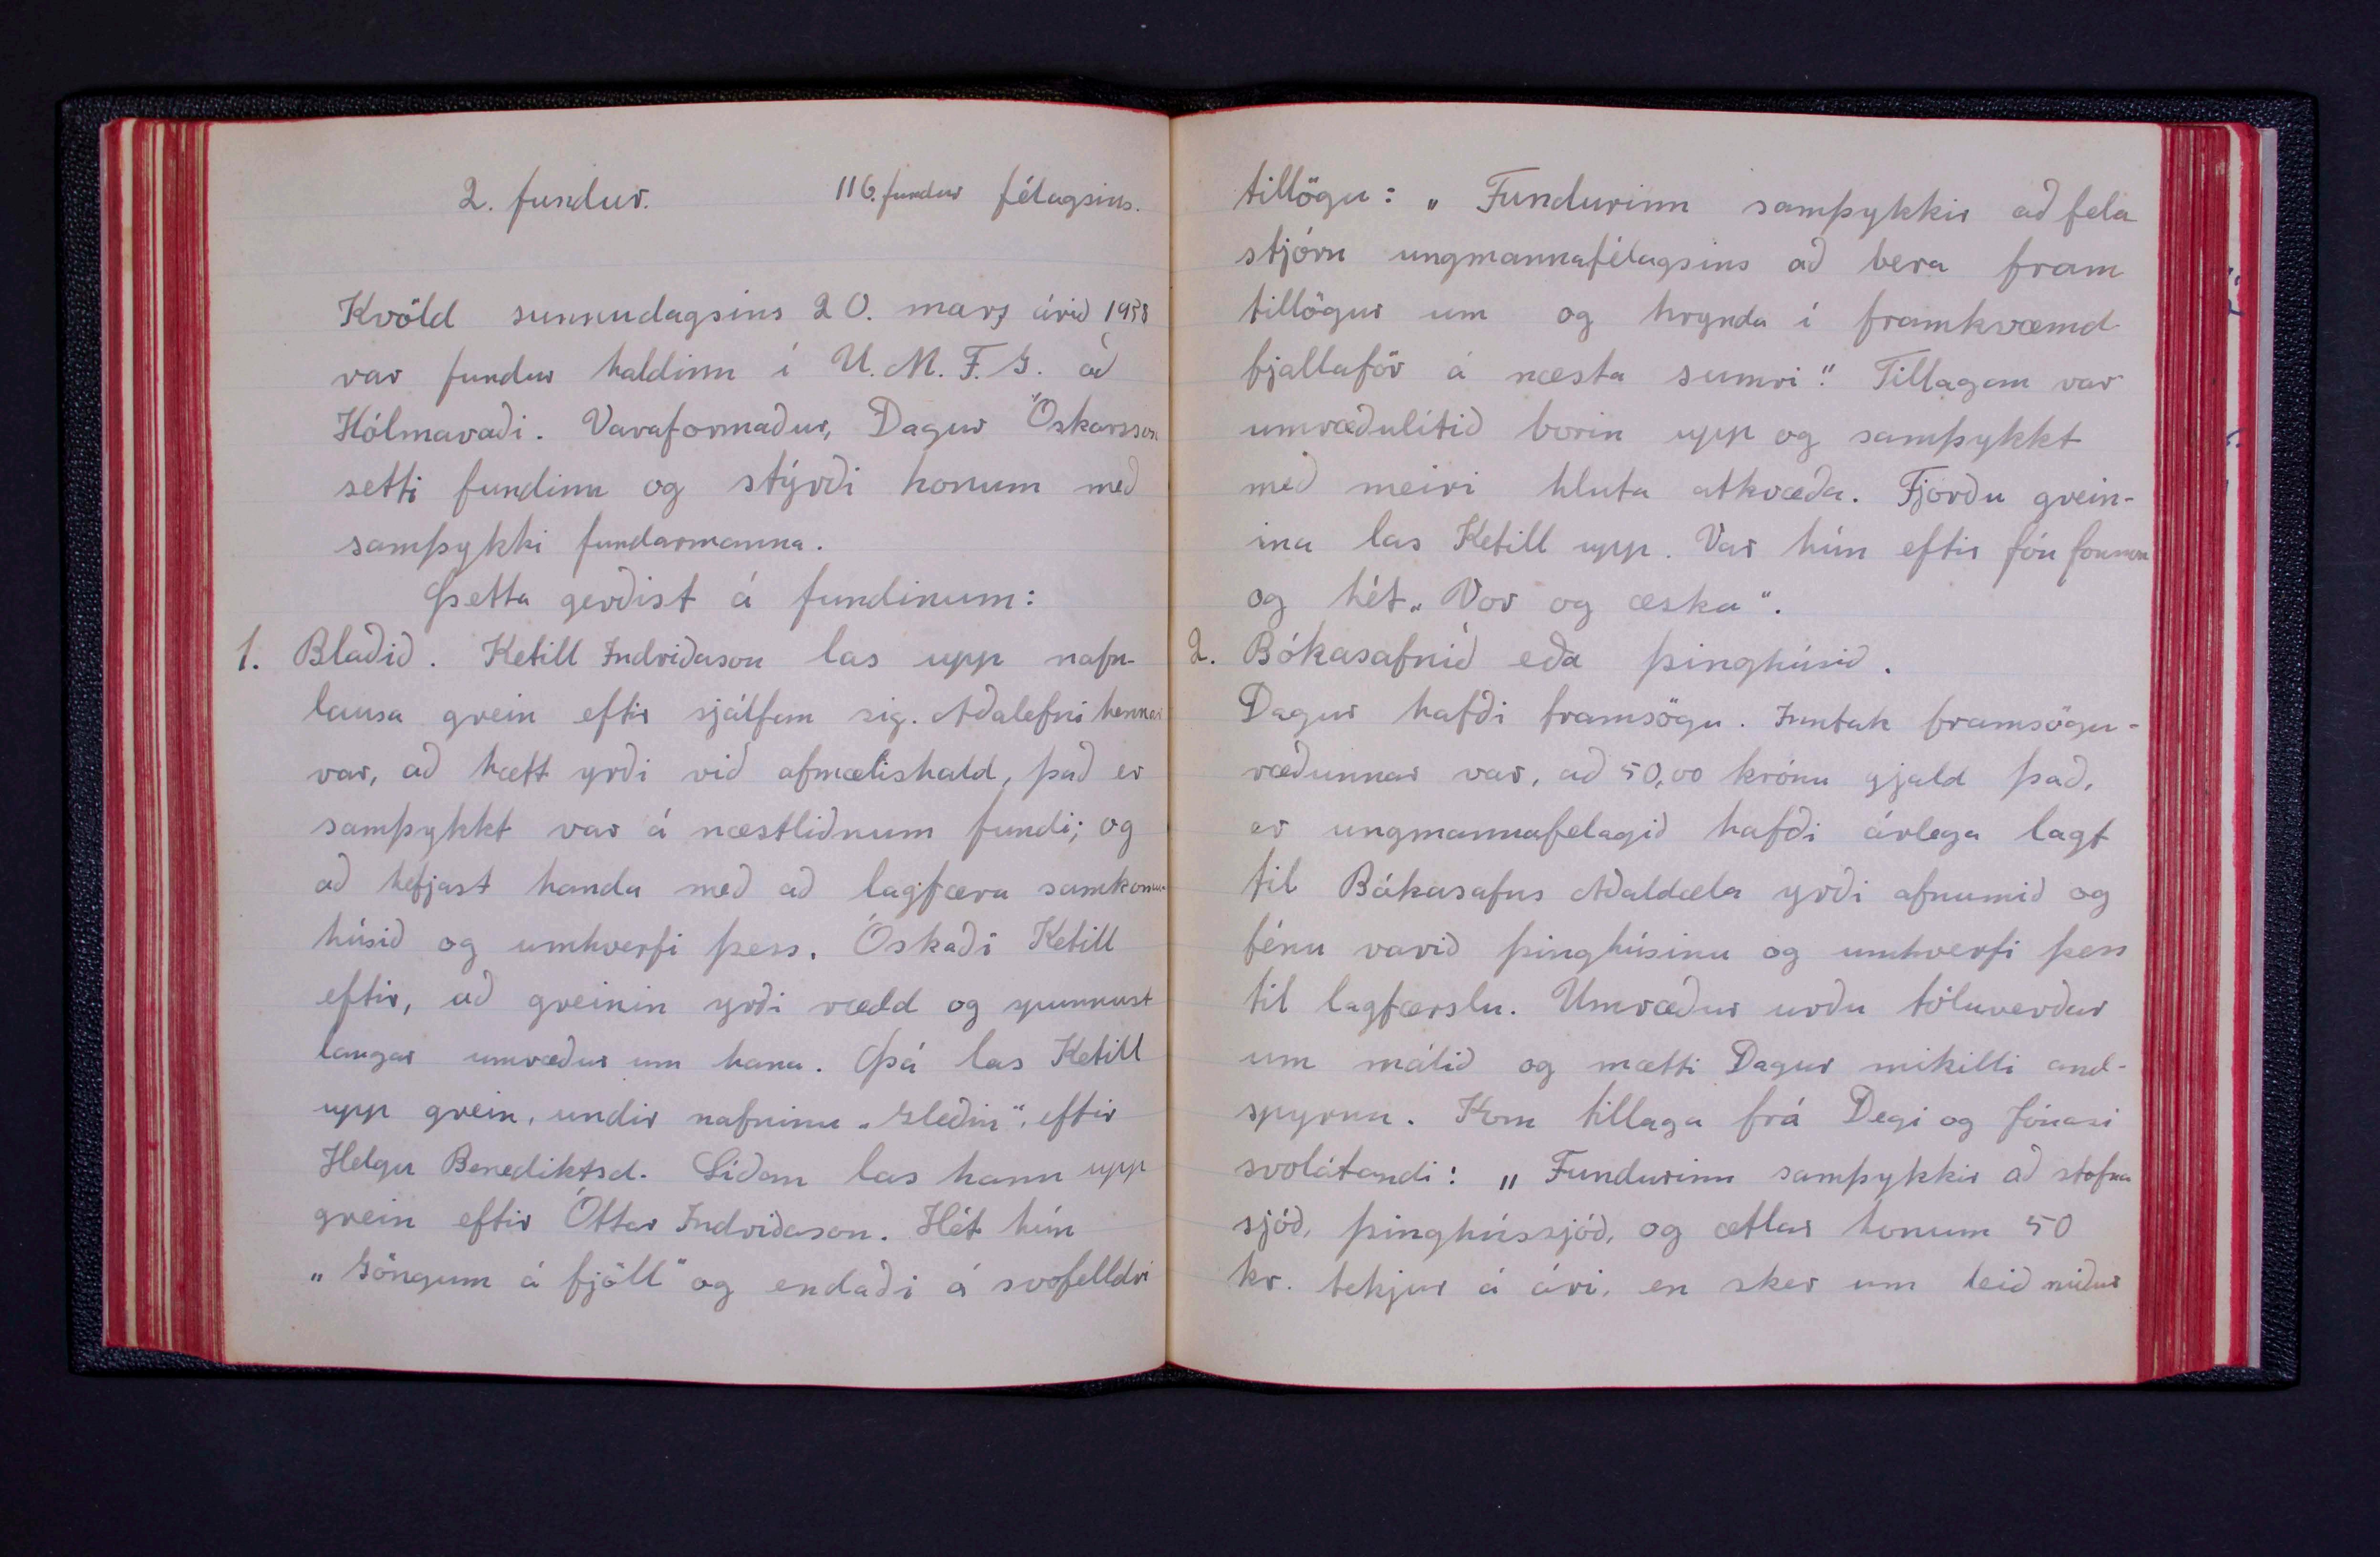 2. fundur. 116. fundur félagsins.
Kvöld sunnudagsins 20. marz árið 1938
var fundur haldinn í U. M. F. G. að
Hólmavaði. Varaformaður, Dagur Óskarsson
setti fundinn og stýrði honum með
samþykki fundarmanna.
Þetta gerðist á fundinum:
1. Blaðið. Ketill Indriðason las upp nafn-
lausa grein eftir sjálfan sig. Aðalefni hennar
var, að hætt yrði við afmælishald, það er
samþykkt var á næstliðnum fundi; og
að hefjast handa með að lagfæra samkomu-
húsið og umhverfi þess. Óskaði Ketill
eftir, að greinin yrði rædd og spunnust
langar umræður um hana. Þá las Ketill
upp grein, undir nafninu „Gleðin“, eftir
Helgu Benediktsd. Síðan las hann upp
grein eftir Óttar Indriðason. Hét hún
„Göngum á fjöll“ og endaði á svofelldri
tillögu: „Fundurinn samþykkir að fela
stjórn ungmannafélagsins að bera fram
tillögur um og hrynda í framkvæmd
fjallaför á næsta sumri.“ Tillagan var
umræðulítið borin upp og samþykkt
með meiri hluta atkvæða. Fjórðu grein-
ina las Ketill upp. Var hún eftir Jón
og hét „Vor og æska“.
2. Bókasafnið eða þinghúsið.
Dagur hafði framsögu. Inntak framsögu-
ræðunnar var, að 50,00 krónu gjald það,
er ungmannafelagið hafði árlega lagt
til Bókasafns Aðaldæla yrði afnumið og
fénu varið þinghúsinu og umhverfi þess
til lagfærslu. Umræður urðu töluverðar
um málið og mætti Dagur mikilli and-
spyrnu. Kom tillaga frá Degi og Jónasi
svolátandi: „Fundurinn samþykkir að stofna
sjóð, þinghússjóð, og ætlar honum 50
kr. tekjur á ári, en sker um leið niður